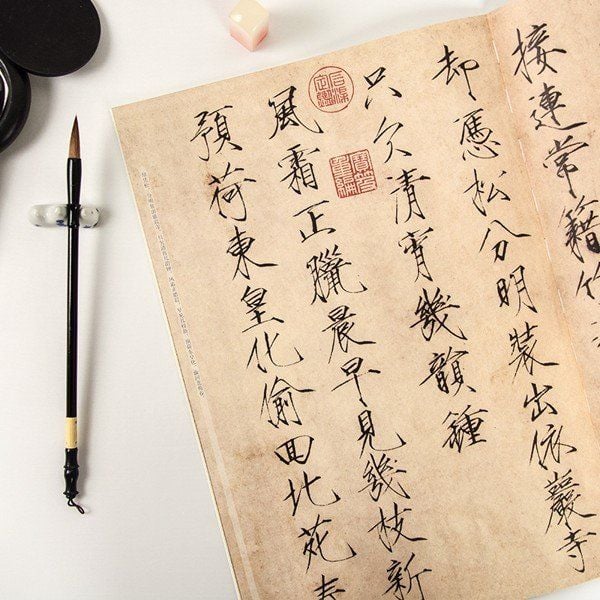 接連常籍竹
却憑松分明裝出依巖寺
只欠清宵幾韻鍾
風霜正臘晨早見幾枝新
預荷東皇化偷回北苑春